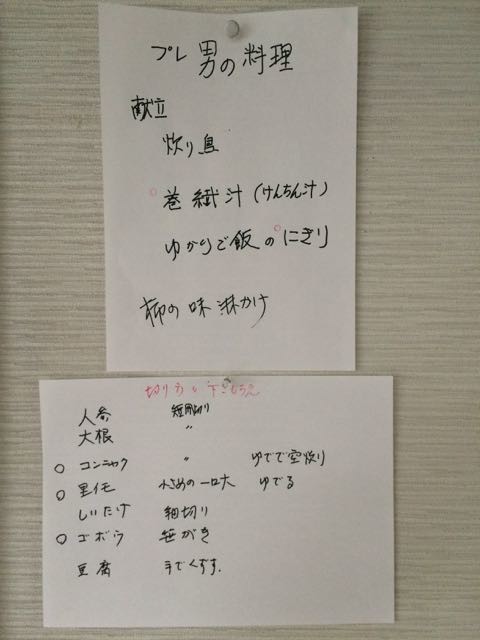 プレ 男の料理
献立
炒り鳥
巻繊汁(けんちん汁)
ゆかりご飯のにぎり
柿の味淋かけ
切り方と下ごしらえ
人参 短冊切り
大根 〃
○ コンニャク 〃 ゆでで空炒り
○ 里イモ 大きめの一口大 ゆでる
しいたけ 細切り
○ ゴボウ 笹がき
豆腐 手でくずす.